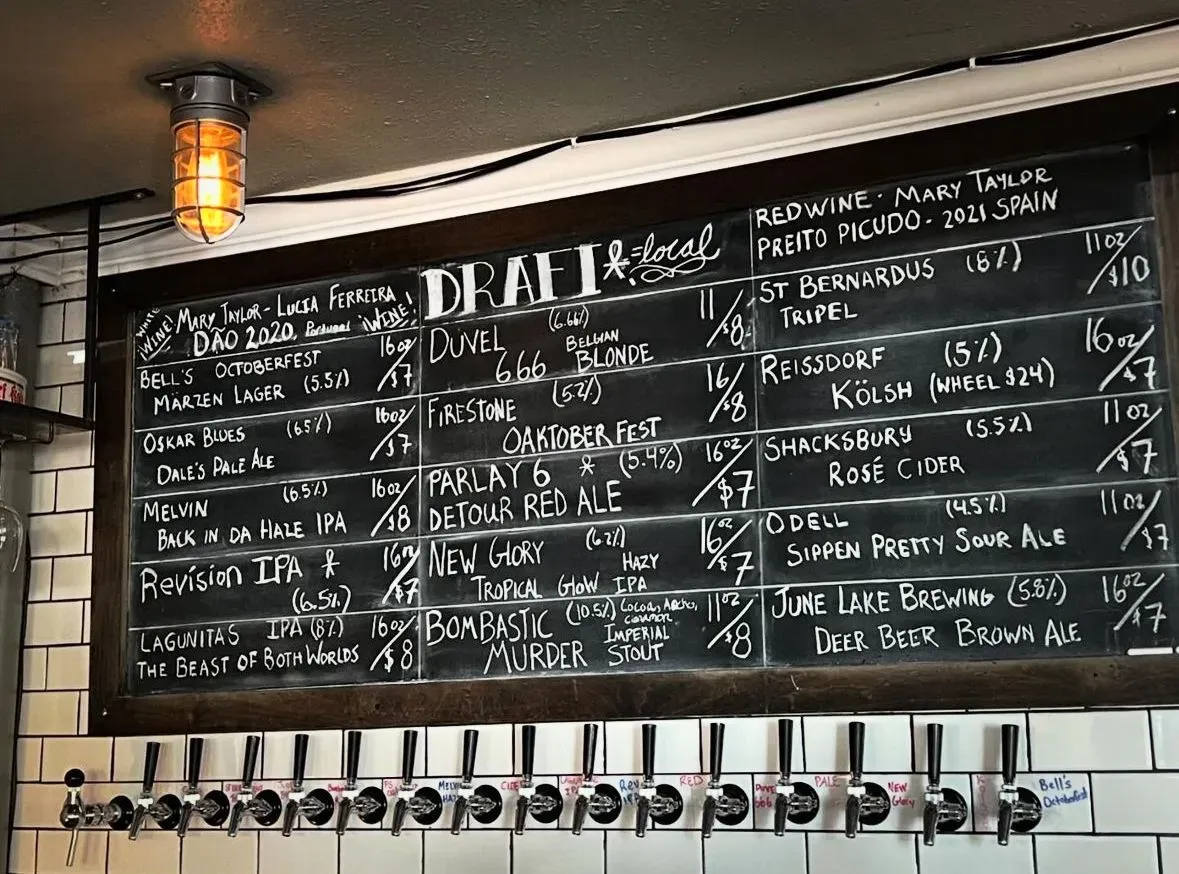 WHITE
WINE!
MARY TAYLOR - LUCIA FERREIRA
DÃO 2020. Portugal ¡WINE!
BELL'S OCTOBERFEST 16oz
MÄRZEN LAGER (5.5%) /$7
OSKAR BLUES (6.5%) 16oz
DALE'S PALE ALE /$7
MELVIN (6.5%) 16oz
BACK IN DA HAZE IPA /$8
Revision IPA * 16oz
(6.5%) /$7
LAGUNITAS IPA (8%) 16oz
THE BEAST OF BOTH WORLDS /$8
DRAFT *=local
DUVEL (6.66%) 11
666 BELGIAN BLONDE /$8
FIRESTONE (5.2%) 16/
OAKTOBERFEST $8
PARLAY 6 * (5.4%) 16oz
DETOUR RED ALE /$7
NEW GLORY (6.2%) HAZY 16oz
TROPICAL GLOW IPA /$7
BOMBASTIC (10.5%) Cocoa, cinnamon 11oz
MURDER IMPERIAL STOUT /$8
RED WINE - MARY TAYLOR
PREITO PICUDO - 2021 SPAIN
ST BERNARDUS (8%) 11oz
TRIPEL /$10
REISSDORF (5%) 16oz
KÖLSH (WHEEL $24) /$7
SHACKSBURY (5.5%) 11oz
ROSÉ CIDER /$7
ODELL (4.5%) 11oz
SIPPEN PRETTY SOUR ALE /$7
JUNE LAKE BREWING (5.8%) 16oz
DEER BEER BROWN ALE /$7
MELVIN
HAZE
CIDER
RED
PALE
New
Glory
Bell's
Octoberfest